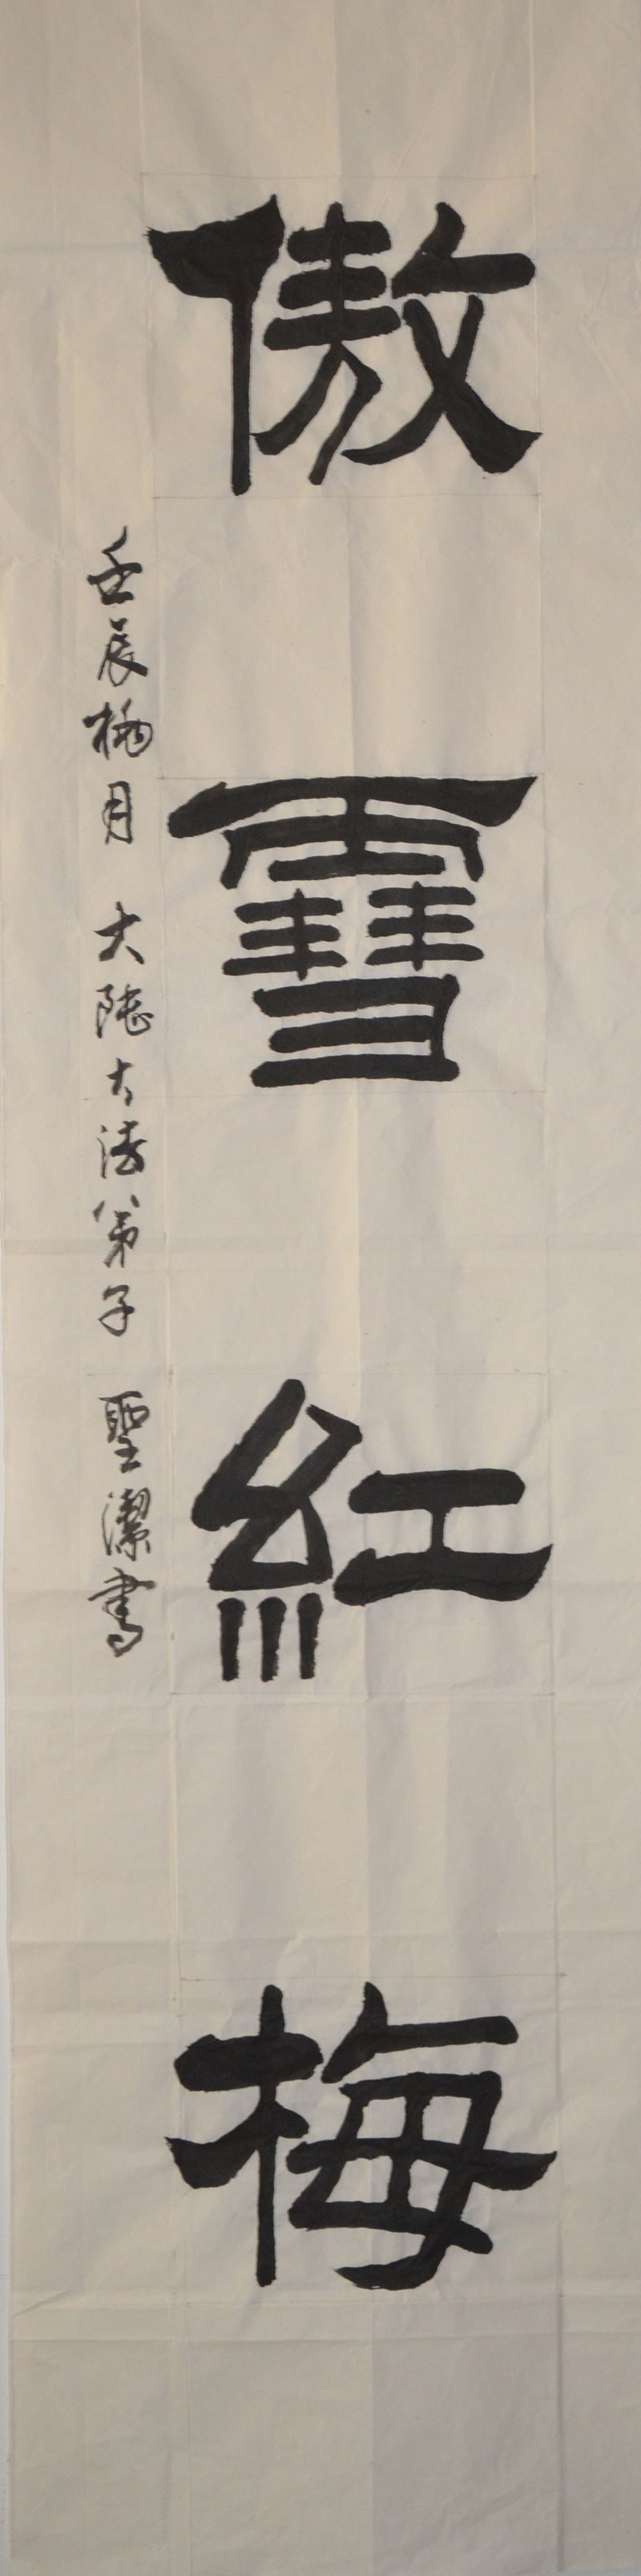 傲雪紅梅
壬辰梅月 大陸大法弟子 聖潔書